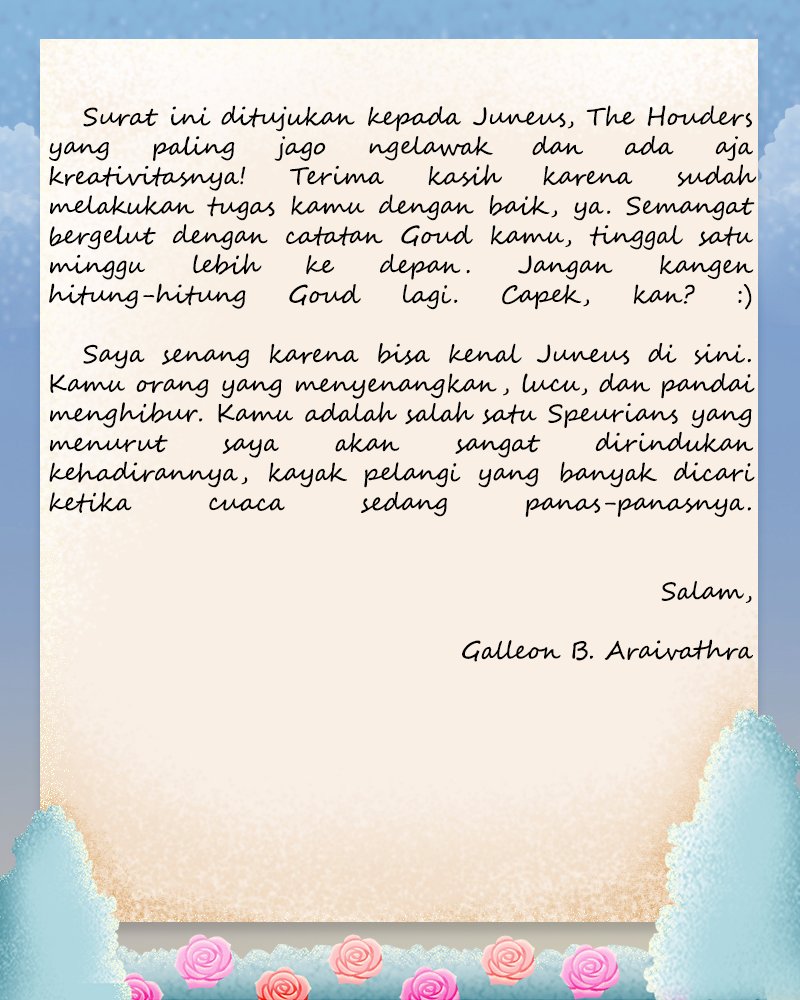 Surat ini ditujukan kepada Juneus, The Houders
yang paling jago ngelawak dan ada aja
kreativitasnya! Terima kasih karena sudah
melakukan tugas kamu dengan baik, ya. Semangat
bergelut dengan catatan Goud kamu, tinggal satu
minggu lebih ke depan. Jangan kangen
hitung-hitung Goud lagi. Capek, kan? :)
Saya senang karena bisa kenal Juneus di sini.
Kamu orang yang menyenangkan, lucu, dan pandai
menghibur. Kamu adalah salah satu Speurians yang
menurut saya akan sangat dirindukan
kehadirannya, kayak pelangi yang banyak dicari
ketika cuaca sedang panas-panasnya.
Salam,
Galleon B. Araivathra